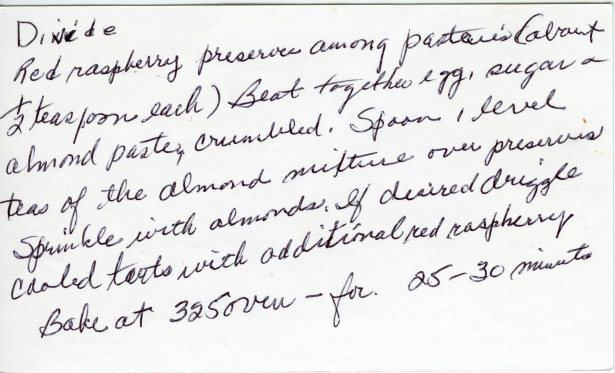 Divide
Red raspberry preserves among pasteries (about
1/2 teaspoon each) Beat together egg, sugar &
almond paste, crumbled. Spoon 1 level
teas of the almond mixture over preserves
Sprinkle with almonds. If desired drizzle
cooled tarts with additional red raspberry
Bake at 325 oven - for. 25-30 minuts